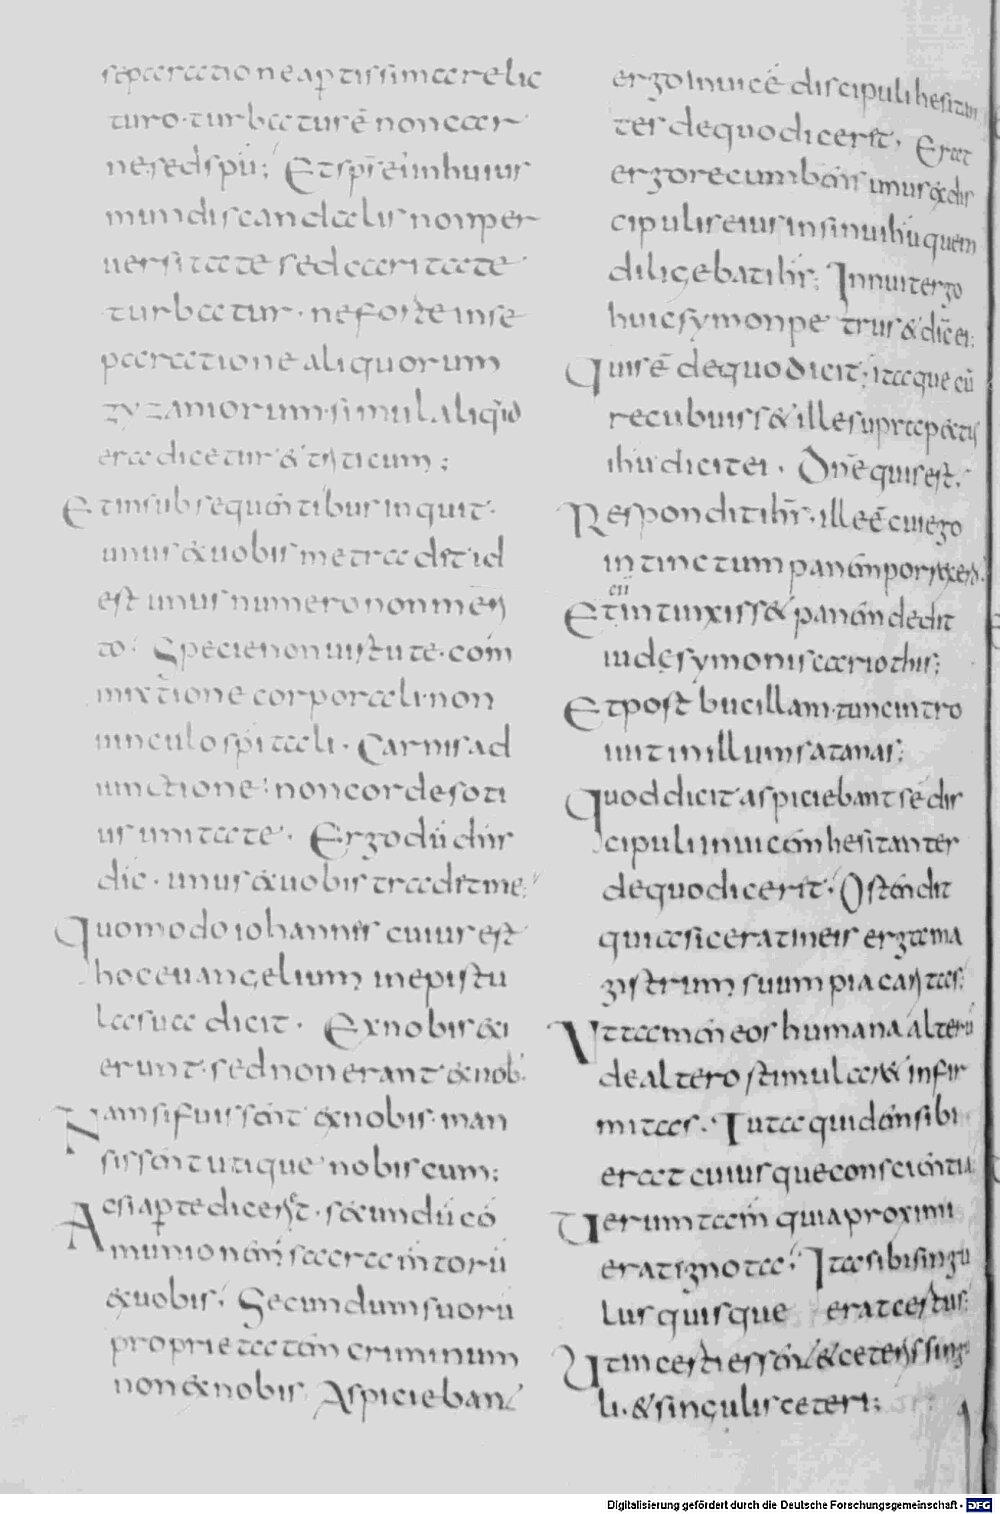 seperatione aptissima relic
turo· turbatur ē non car
ne, sed spū; Et spr̄ ei' in huius
mundi scandalis non per
uersitate sed caritate
turbatur· ne forte in se
paratione aliquorum
zyzaniorum· simul aliq'd
eradicetur & triticum;
Et in subsequentibus inquit·
unus ex uobis me tradet· id
est unus numero non meri
to· Specie non uirtute· com
mixtione corporali· non
uinculo spitali· Carnis ad
iunctione· non cordis soti
us unitate· Ergo dū dn̄s
dic· unus ex uobis tradet me;
Quomodo iohannis cuius est
hoc euangelium in epistu
la sua dicit· Ex nobis exi
erunt· sed non erant ex nob'
Nam si fuissent ex nobis· man
sissent utique nobiscum;
Ac si aperte diceret· secundū cō
munionem sacramentorū
ex uobis; Secundum suorū
proprietatem criminum
non ex nobis Aspicieban
ergo inuicē discipuli hesitan
ter de quo dicerēt; Erat
ergo recumbens unus ex dis
cipulis eius in sinu ihū quem
diligebat ihs̄; Innuit ergo
huic symon petrus & dic̄ ei;
Quis ē de quo dicit; itaque cū
recubuiss& ille supra pectus
ihū dicit ei· Dn̄e quis est;
Respondit ihs̄· ille ē cui ego
intinctum panem porrexero
cū
Et intinxiss& panem dedit
iudę symonis cariothis;
Et post bucillam· tunc intro
iuit in illum satanas;
Quod dicit aspiciebant se dis
cipuli inuicem hesitanter
de quo dicerēt· Ostendit
quia si cerat in eis erga ma
gistrum suum pia caritas;
Ut tamen eos humana alterū
de altero stimularet infir
mitas· Ita quidem sibi
erat cuiusque conscientia
Uerum tamen quia proximi
erat ignota; Ita sibi singu
lus quisque erat certus;
Ut incerti essent & ceteri singu
li· & singulis ceteri;
Digitalisierung gefördert durch die Deutsche Forschungsgemeinschaft - DFG